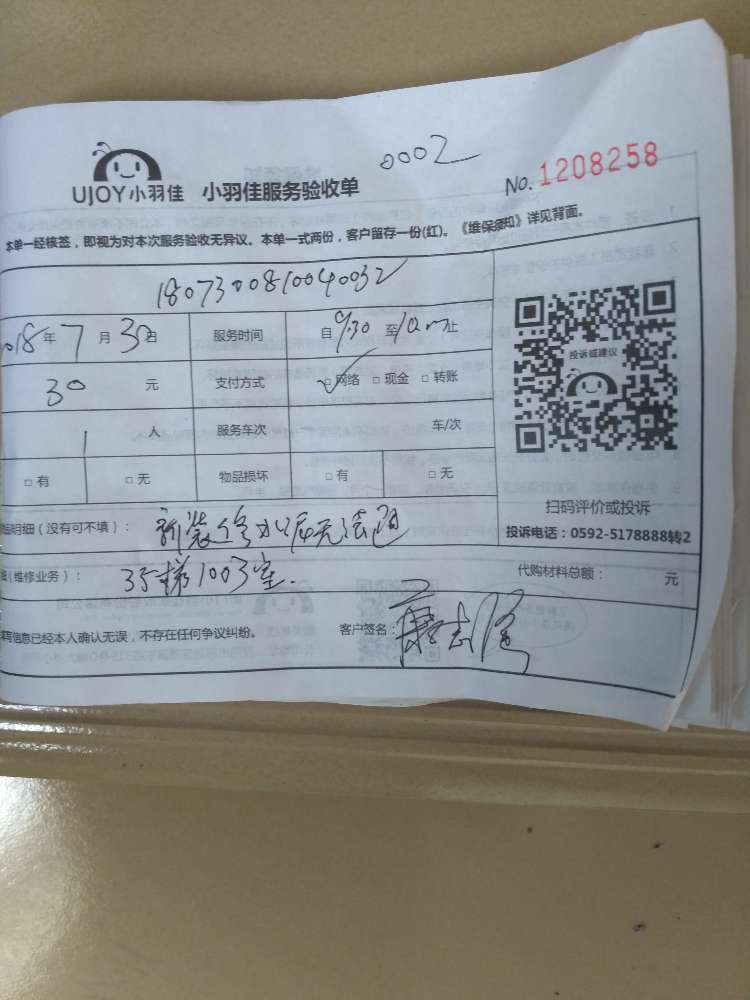 0002
UJOY小羽佳 小羽佳服务验收单
No. 1208258
本单一经核签,即视为对本次服务验收无异议。本单一式两份,客户留存一份(红)。《维保须知》详见背面。
1807300810040032
2018年 7 月 30日 服务时间 自 9:30 至 10 止
30 元 支付方式 ☑网络 □现金 □转账
投诉或建议
1 人 服务车次 车/次
□有 □无 物品损坏 □有 □无
扫码评价或投诉
明细(没有可不填): 新装修水
投诉电话:0592-5178888转2
(维修业务): 35梯1003室.
代购材料总额: 元
写信息已经本人确认无误,不存在任何争议纠纷。 客户签名: